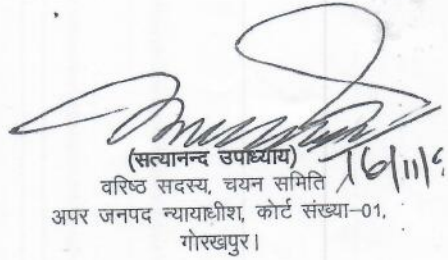 (सत्यानन्द उपाध्याय)
16/11/
वरिष्ठ सदस्य, चयन समिति
अपर जनपद न्यायाधीश, कोर्ट संख्या–01,
गोरखपुर।